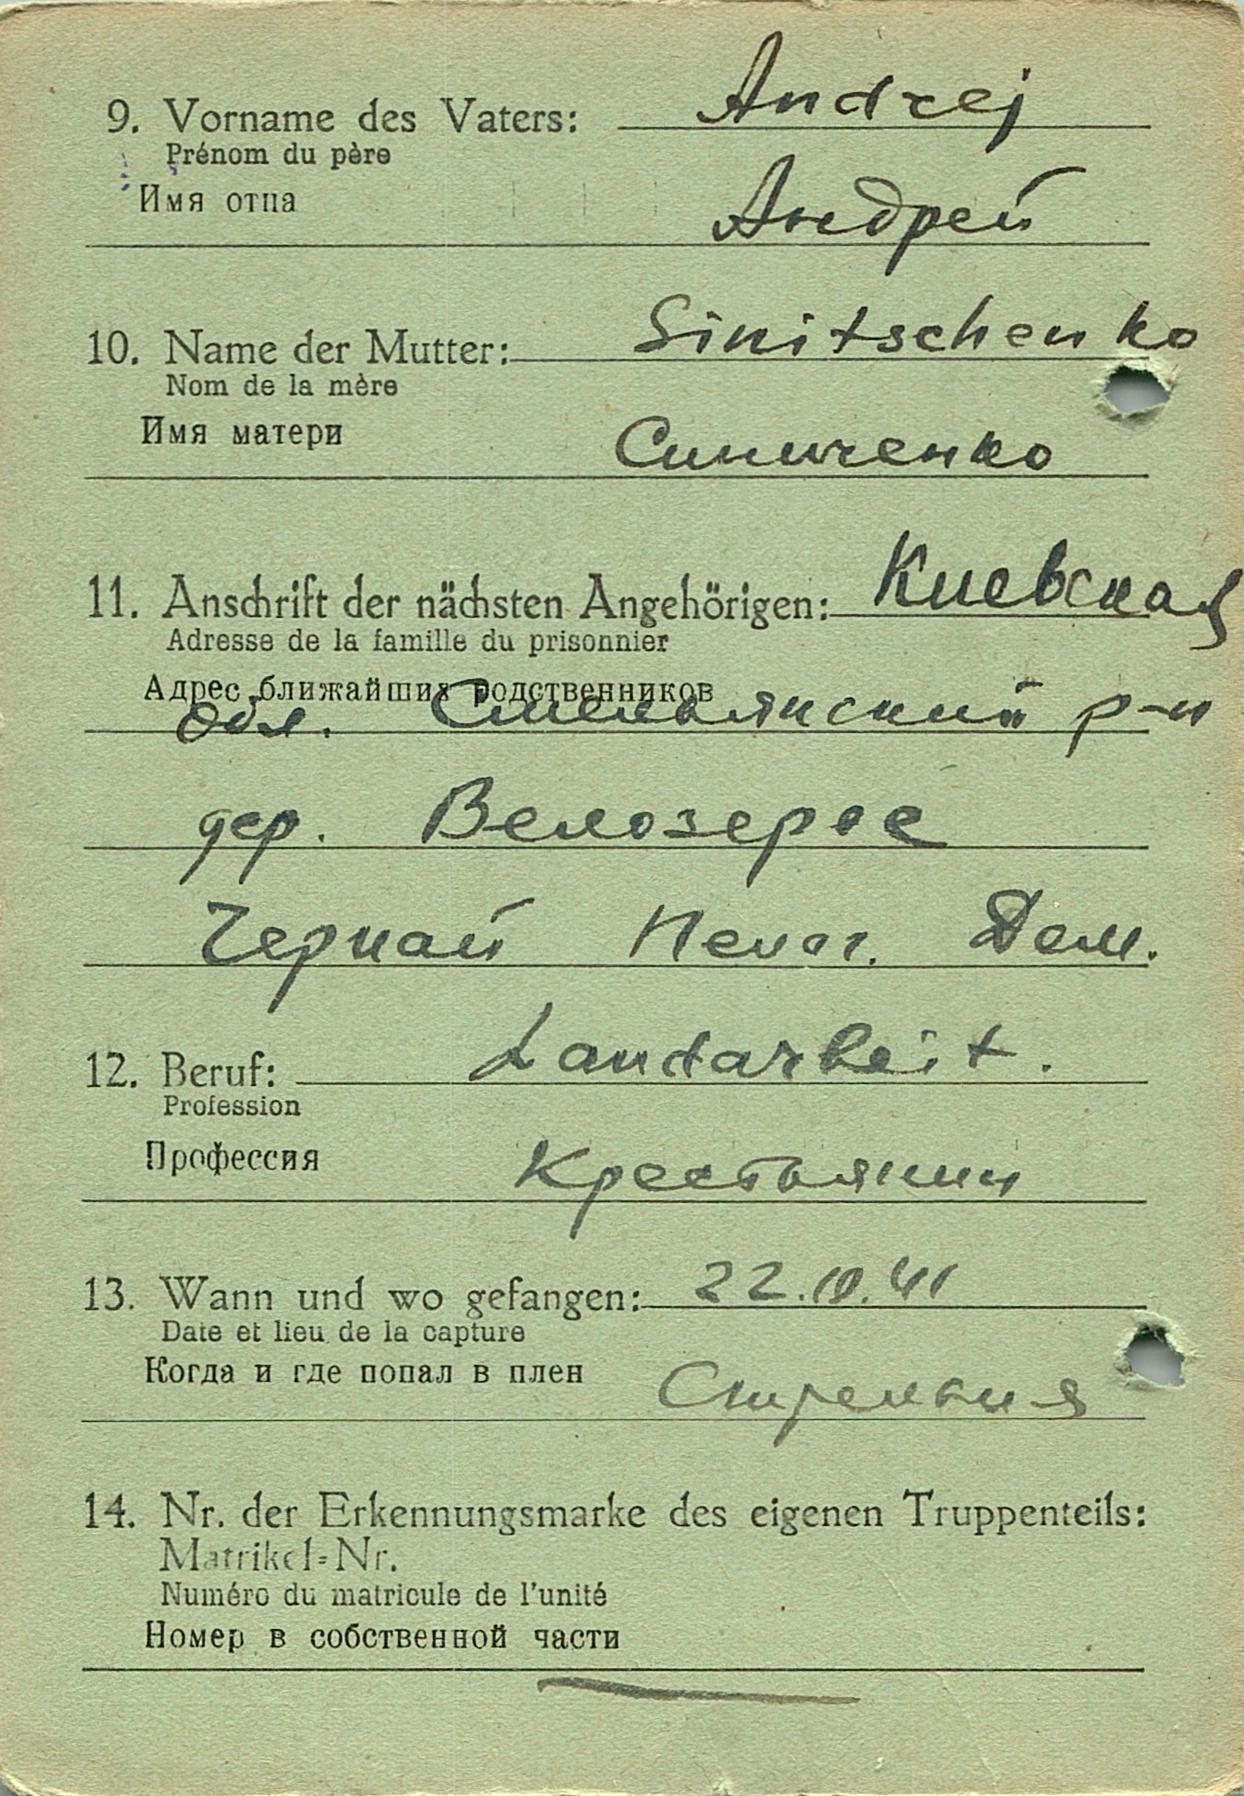 9. Vorname des Vaters: Andrej
Prénom du père
Имя отца
Андрей
10. Name der Mutter: Sinitschenko
Nom de la mère
Имя матери
Синиченко
11. Anschrift der nächsten Angehörigen: Киевская
Adresse de la famille du prisonnier
Адрес ближайших родственников
обл. Смельянский р-н
дер. Белозерое
Чернай Пелаг. Дем.
12. Beruf: Landarbeit.
Profession
Профессия
Крестьянин
13. Wann und wo gefangen: 22.10.41
Date et lieu de la capture
Когда и где попал в плен
14. Nr. der Erkennungsmarke des eigenen Truppenteils:
Matrikel-Nr.
Numéro du matricule de l'unité
Номер в собственной части